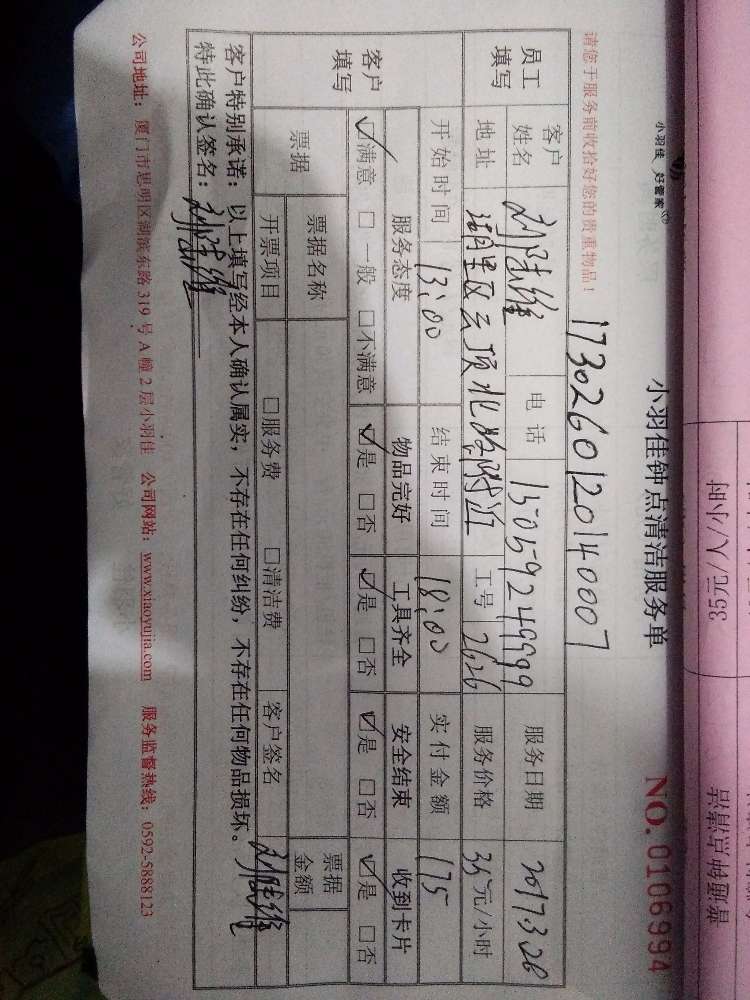 35元/人/小时
普通钟点清洁
小羽佳 好管家
小羽佳钟点清洁服务单
NO. 0106994
请您于服务前收拾好您的贵重物品！
17302601201400007
员工填写
客户姓名
电话 15059249999
服务日期 2017.3.28
地址 湖里区云顶北路附近
工号 2626
服务价格 35元/小时
客户填写
开始时间 13:00
结束时间 18:00
实付金额 175
服务态度 物品完好 工具齐全 安全结束 收到卡片
☑满意 □一般 □不满意 ☑是 □否 ☑是 □否 ☑是 □否 ☑是 □否
票据
票据名称
票据金额
开票项目 □服务费 □清洁费 客户签名
客户特别承诺：以上填写经本人确认属实，不存在任何纠纷，不存在任何物品损坏。
特此确认签名：
公司地址：厦门市思明区湖滨东路 319 号 A 幢 2 层小羽佳 公司网站：www.xiaoyujia.com 服务监督热线：0592-5888123